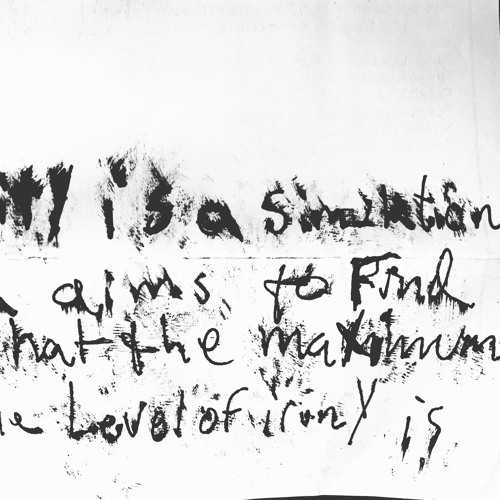 is a Simulation
aims to Find
hat the maximum
Level of irony is